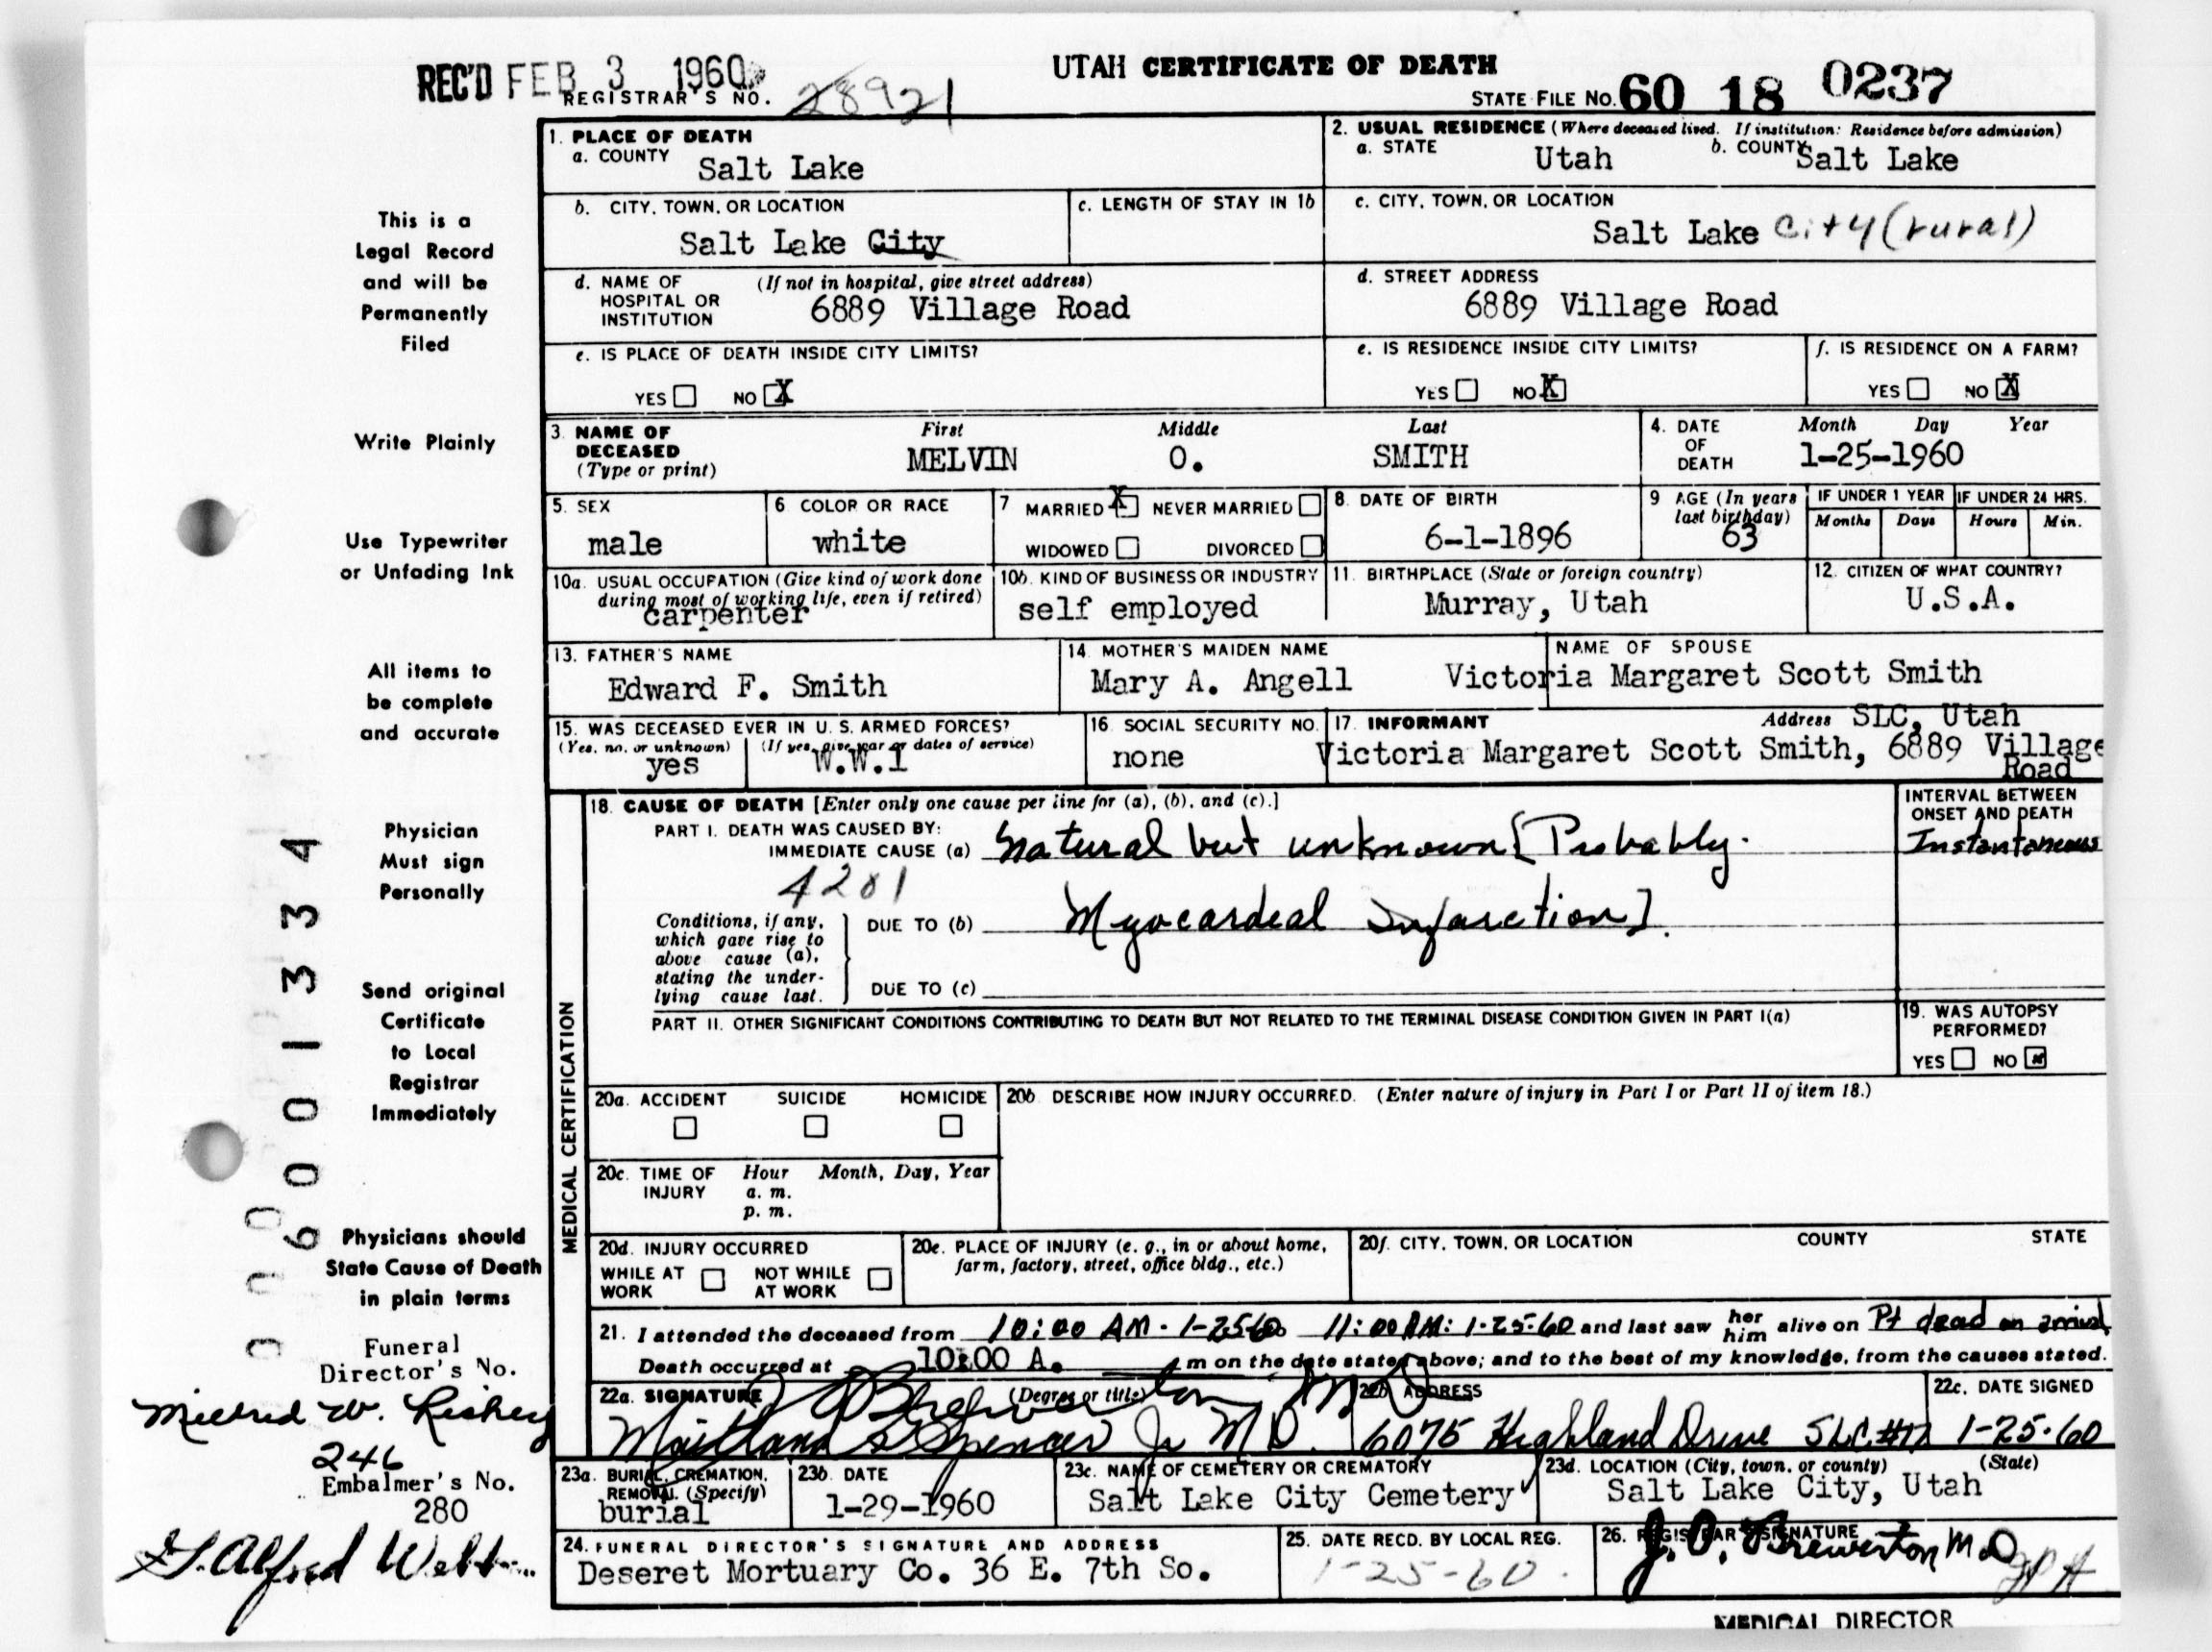 REC'D FEB 3 1960
UTAH CERTIFICATE OF DEATH
REGISTRAR'S NO. 28921
STATE FILE NO. 60 18 0237
This is a
Legal Record
and will be
Permanently
Filed
Write Plainly
Use Typewriter
or Unfading Ink
All items to
be complete
and accurate
Physician
Must sign
Personally
Send original
Certificate
to Local
Registrar
Immediately
Physicians should
State Cause of Death
in plain terms
Funeral
Director's No.
Mildred W.
246
Embalmer's No.
280
Alfred
6001334
1. PLACE OF DEATH
a. COUNTY Salt Lake
2. USUAL RESIDENCE (Where deceased lived. If institution: Residence before admission)
a. STATE Utah b. COUNTY Salt Lake
b. CITY, TOWN, OR LOCATION Salt Lake City
c. LENGTH OF STAY IN 1b
c. CITY, TOWN, OR LOCATION Salt Lake City (rural)
d. NAME OF HOSPITAL OR INSTITUTION (If not in hospital, give street address) 6889 Village Road
d. STREET ADDRESS 6889 Village Road
e. IS PLACE OF DEATH INSIDE CITY LIMITS?
YES NO X
e. IS RESIDENCE INSIDE CITY LIMITS?
YES NO X
f. IS RESIDENCE ON A FARM?
YES NO X
3. NAME OF DECEASED (Type or print)
First Middle Last
MELVIN O. SMITH
4. DATE OF DEATH Month Day Year
1-25-1960
5. SEX male
6 COLOR OR RACE white
7 MARRIED X NEVER MARRIED
WIDOWED DIVORCED
8. DATE OF BIRTH 6-1-1896
9 AGE (In years last birthday) 63
IF UNDER 1 YEAR Months Days
IF UNDER 24 HRS. Hours Min.
10a. USUAL OCCUPATION (Give kind of work done during most of working life, even if retired) carpenter
10b. KIND OF BUSINESS OR INDUSTRY self employed
11. BIRTHPLACE (State or foreign country) Murray, Utah
12. CITIZEN OF WHAT COUNTRY? U.S.A.
13. FATHER'S NAME Edward F. Smith
14. MOTHER'S MAIDEN NAME Mary A. Angell
NAME OF SPOUSE Victoria Margaret Scott Smith
15. WAS DECEASED EVER IN U. S. ARMED FORCES?
(Yes, no, or unknown) yes
(If yes, give war or dates of service) W.W.I
16. SOCIAL SECURITY NO. none
17. INFORMANT Address SLC, Utah
Victoria Margaret Scott Smith, 6889 Village Road
MEDICAL CERTIFICATION
18. CAUSE OF DEATH [Enter only one cause per line for (a), (b), and (c).]
PART I. DEATH WAS CAUSED BY:
IMMEDIATE CAUSE (a) Natural but unknown [Probably
4201
INTERVAL BETWEEN ONSET AND DEATH
Instantaneous
Conditions, if any, which gave rise to above cause (a), stating the underlying cause last.
DUE TO (b) Myocardeal Infarction].
DUE TO (c)
PART II. OTHER SIGNIFICANT CONDITIONS CONTRIBUTING TO DEATH BUT NOT RELATED TO THE TERMINAL DISEASE CONDITION GIVEN IN PART I(a)
19. WAS AUTOPSY PERFORMED?
YES NO X
20a. ACCIDENT SUICIDE HOMICIDE
20b. DESCRIBE HOW INJURY OCCURRED. (Enter nature of injury in Part I or Part II of item 18.)
20c. TIME OF INJURY Hour Month, Day, Year
a. m.
p. m.
20d. INJURY OCCURRED
WHILE AT WORK NOT WHILE AT WORK
20e. PLACE OF INJURY (e. g., in or about home, farm, factory, street, office bldg., etc.)
20f. CITY, TOWN, OR LOCATION COUNTY STATE
21. I attended the deceased from 10:00 AM. 1-25-60 11:00 AM: 1-25-60 and last saw her him alive on Pt dead on arrival
Death occurred at 10:00 A. m on the date stated above; and to the best of my knowledge, from the causes stated.
22a. SIGNATURE (Degree or title)
Maitland S Spencer Jr MD.
22b ADDRESS 6075 Highland Drive SLC #17
22c. DATE SIGNED 1-25-60
23a. BURIAL, CREMATION, REMOVAL (Specify) burial
23b. DATE 1-29-1960
23c. NAME OF CEMETERY OR CREMATORY Salt Lake City Cemetery
23d. LOCATION (City, town, or county) (State) Salt Lake City, Utah
24. FUNERAL DIRECTOR'S SIGNATURE AND ADDRESS
Deseret Mortuary Co. 36 E. 7th So.
25. DATE RECD. BY LOCAL REG. 1-25-60.
26. REGISTRAR'S SIGNATURE J. O. Brewerton M.D
MEDICAL DIRECTOR